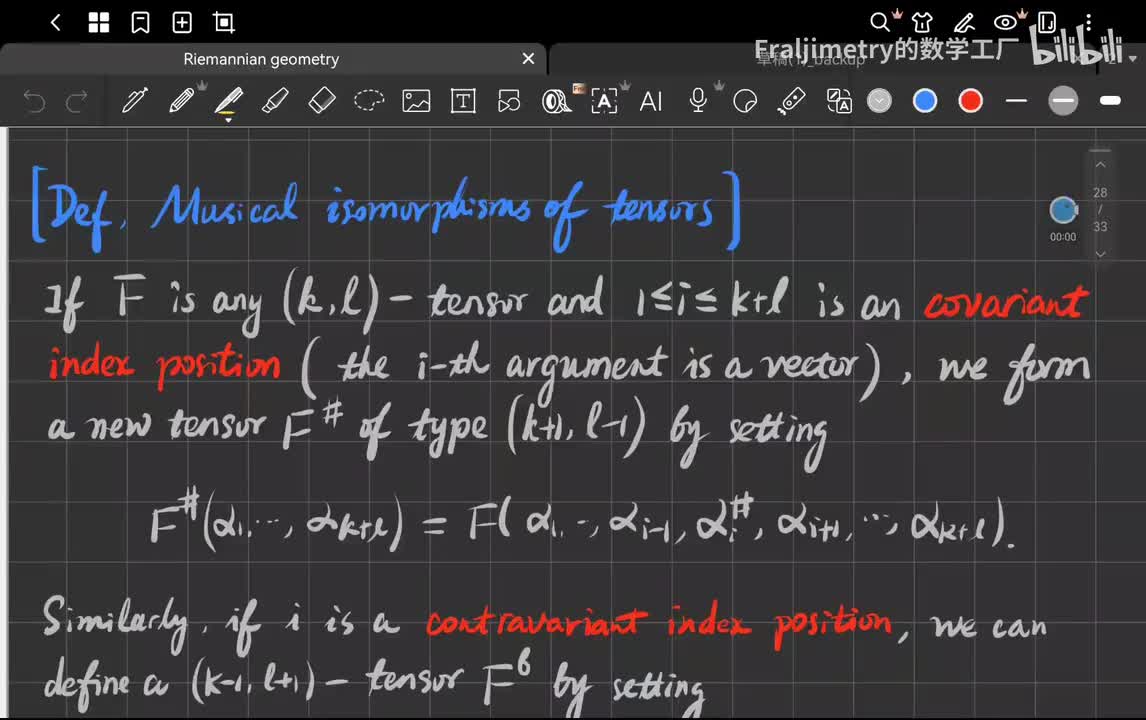 Fraljimetry的数学工厂 bilibili
Riemannian geometry
草稿(1)_backup
28
/
33
00:00
[Def. Musical isomorphisms of tensors]
If F is any (k,l)-tensor and 1≤i≤k+l is an covariant
index position (the i-th argument is a vector), we form
a new tensor F^# of type (k+1, l-1) by setting
F^#(α₁, ..., α_{k+l}) = F(α₁, .., α_{i-1}, α_i^#, α_{i+1}, ..., α_{k+l}).
Similarly, if i is a contravariant index position, we can
define a (k-1, l+1)-tensor F^b by setting